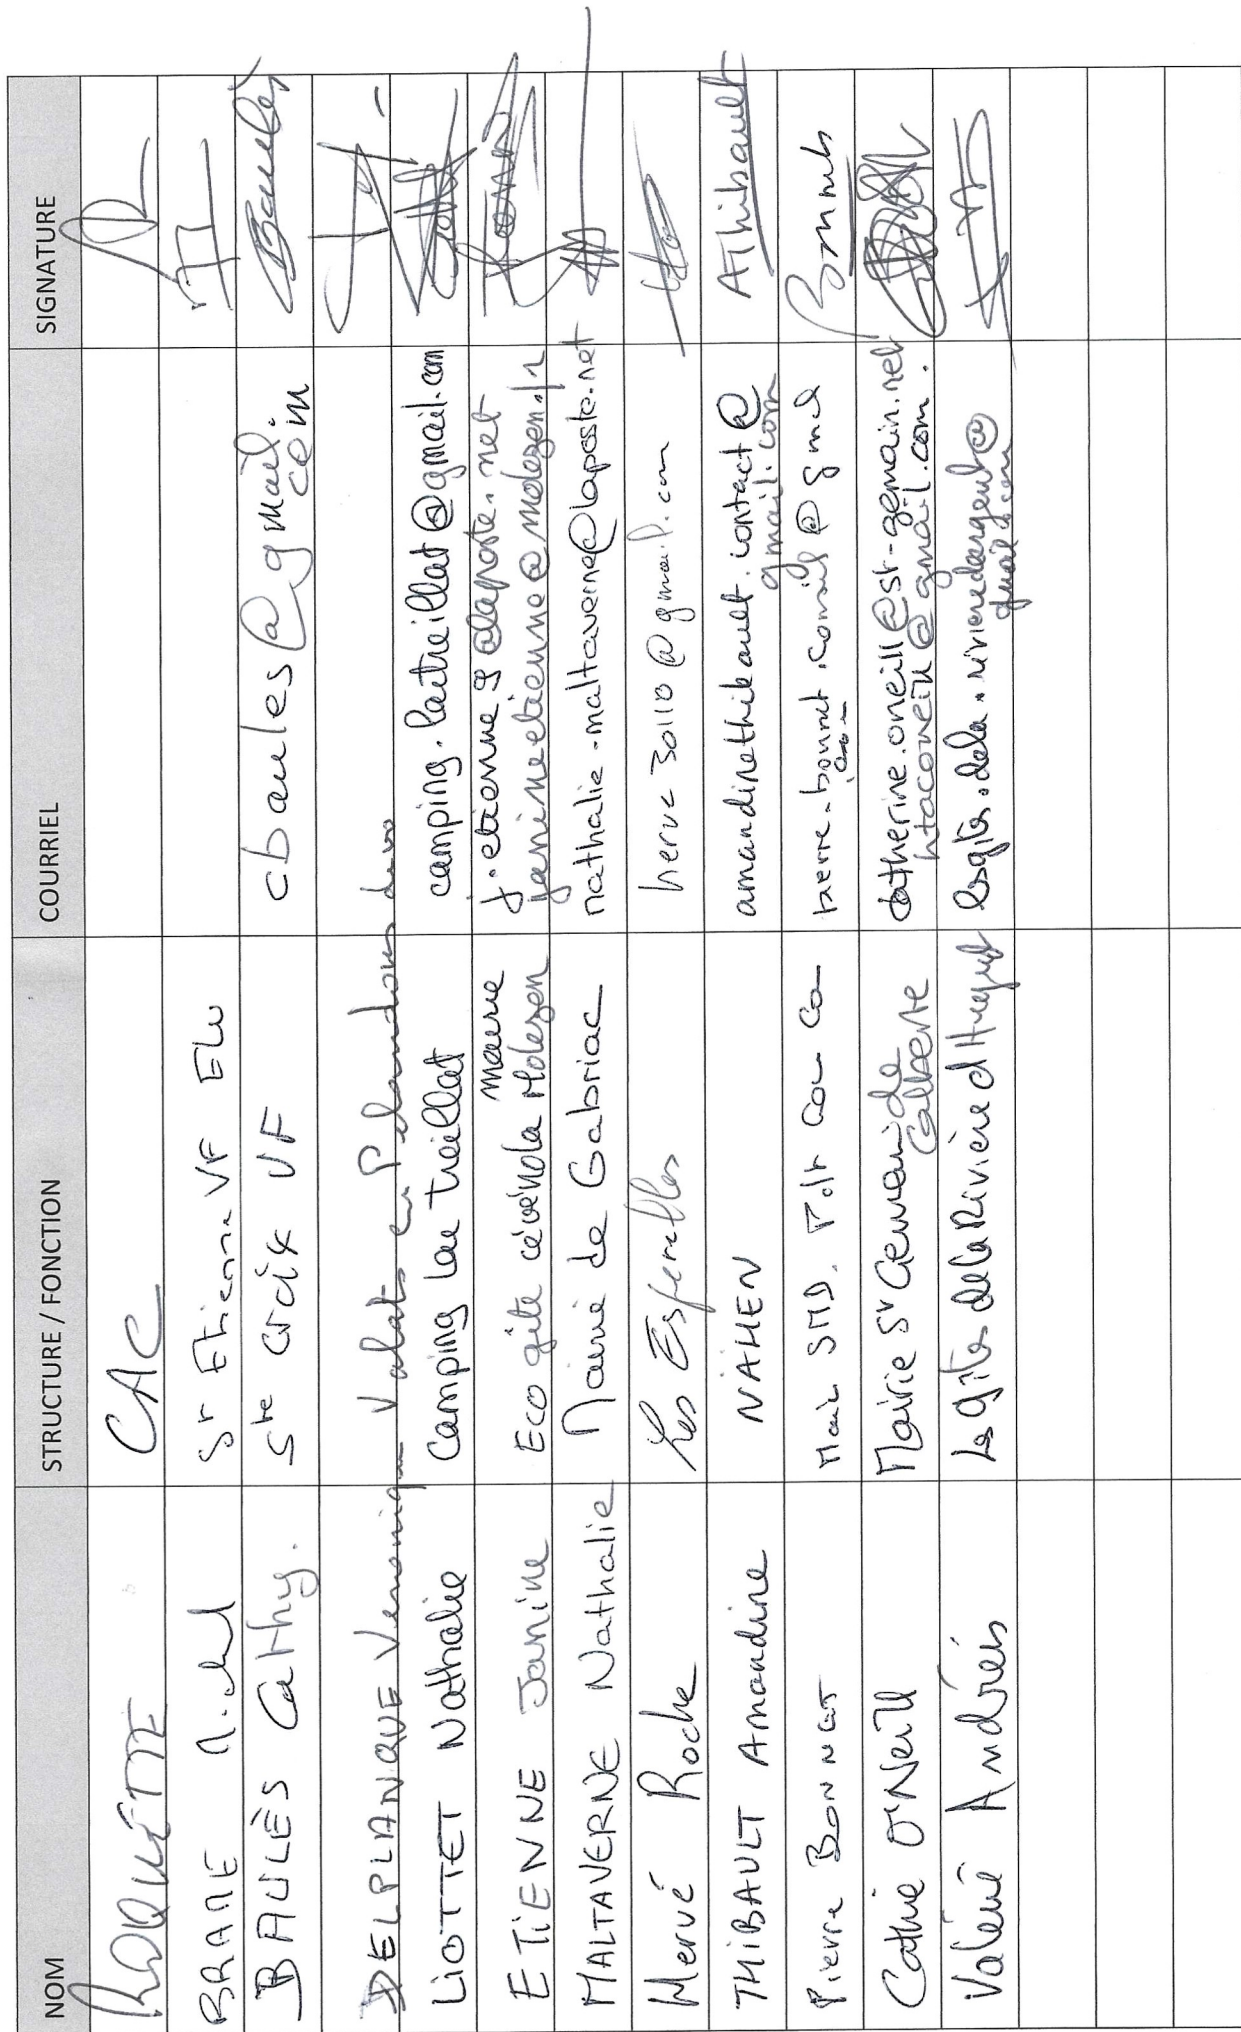 NOM STRUCTURE / FONCTION COURRIEL SIGNATURE
ROQUETTE CAC
BRAME Michel St Etienne VF Elu
BAULÈS Cathy. Ste Croix VF cbaules@gmail.com Baulès
DELPLANQUE Veronique Valat en Pelardon
LIOTTET Nathalie Camping Lou treillat camping.loutreillat@gmail.com
ETIENNE Janine Eco gîte cévénola Molezon mairie j.etienne9@laposte.net
janineetienne@molezon.fr
MALTAVERNE Nathalie Mairie de Gabriac nathalie-maltaverne@laposte.net
Hervé Roche Les Esperelles herve30110@gmail.com
THIBAULT Amandine NAHEN amandinethibault.contact@gmail.com AThibault
Pierre BONNET Maire SMD. Pdt Com Com pierre.bonnet.conseil@gmail.com
Cathie O'Neill Mairie St Germain de Calberte catherine.oneill@st-germain.net
htaconeill@gmail.com.
Valérie Andréis Les gîtes de la Rivière d'Argent lesgites.dela.rivieredargent@gmail.com